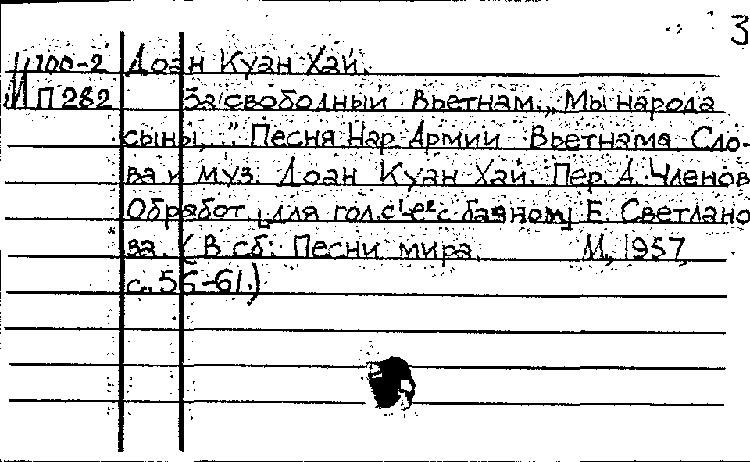 3
М 100-2 Доан Куан Хай.
П 282 За свободный Вьетнам. „Мы народа
сыны,..." Песня Нар. Армии Вьетнама. Сло-
ва и муз. Доан Куан Хай. Пер. А. Членов
Обработ. [для гол. с баяном] Е. Светлано
ва. (В сб: Песни мира. М., 1957,
с. 56-61.)